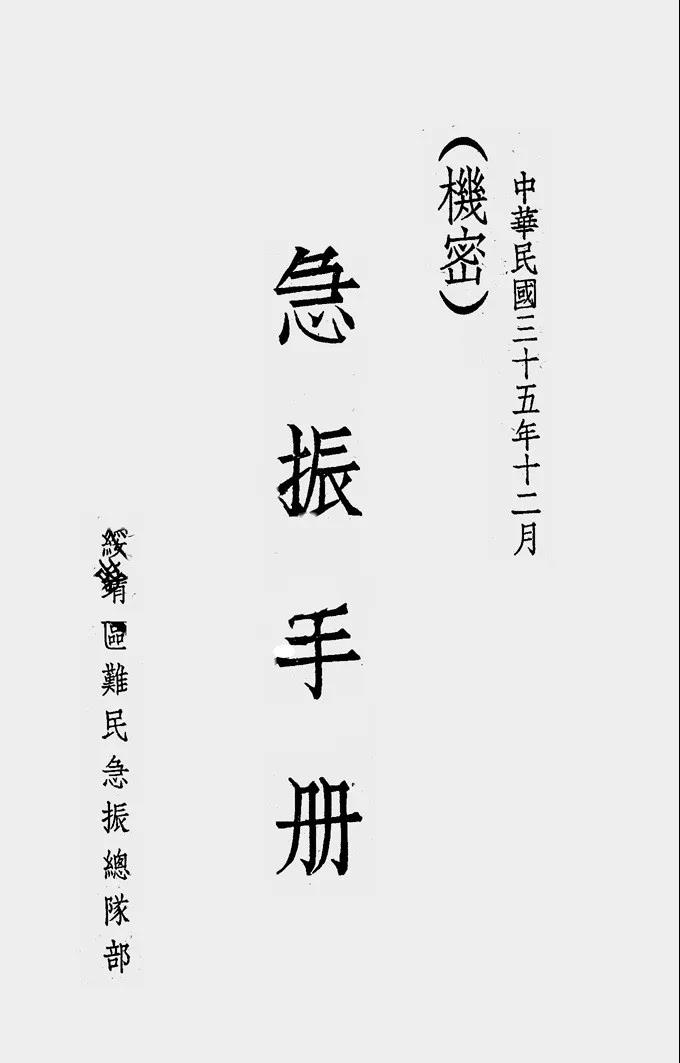 中華民國三十五年十二月
（機密）
急振手册
綏靖區難民急振總隊部